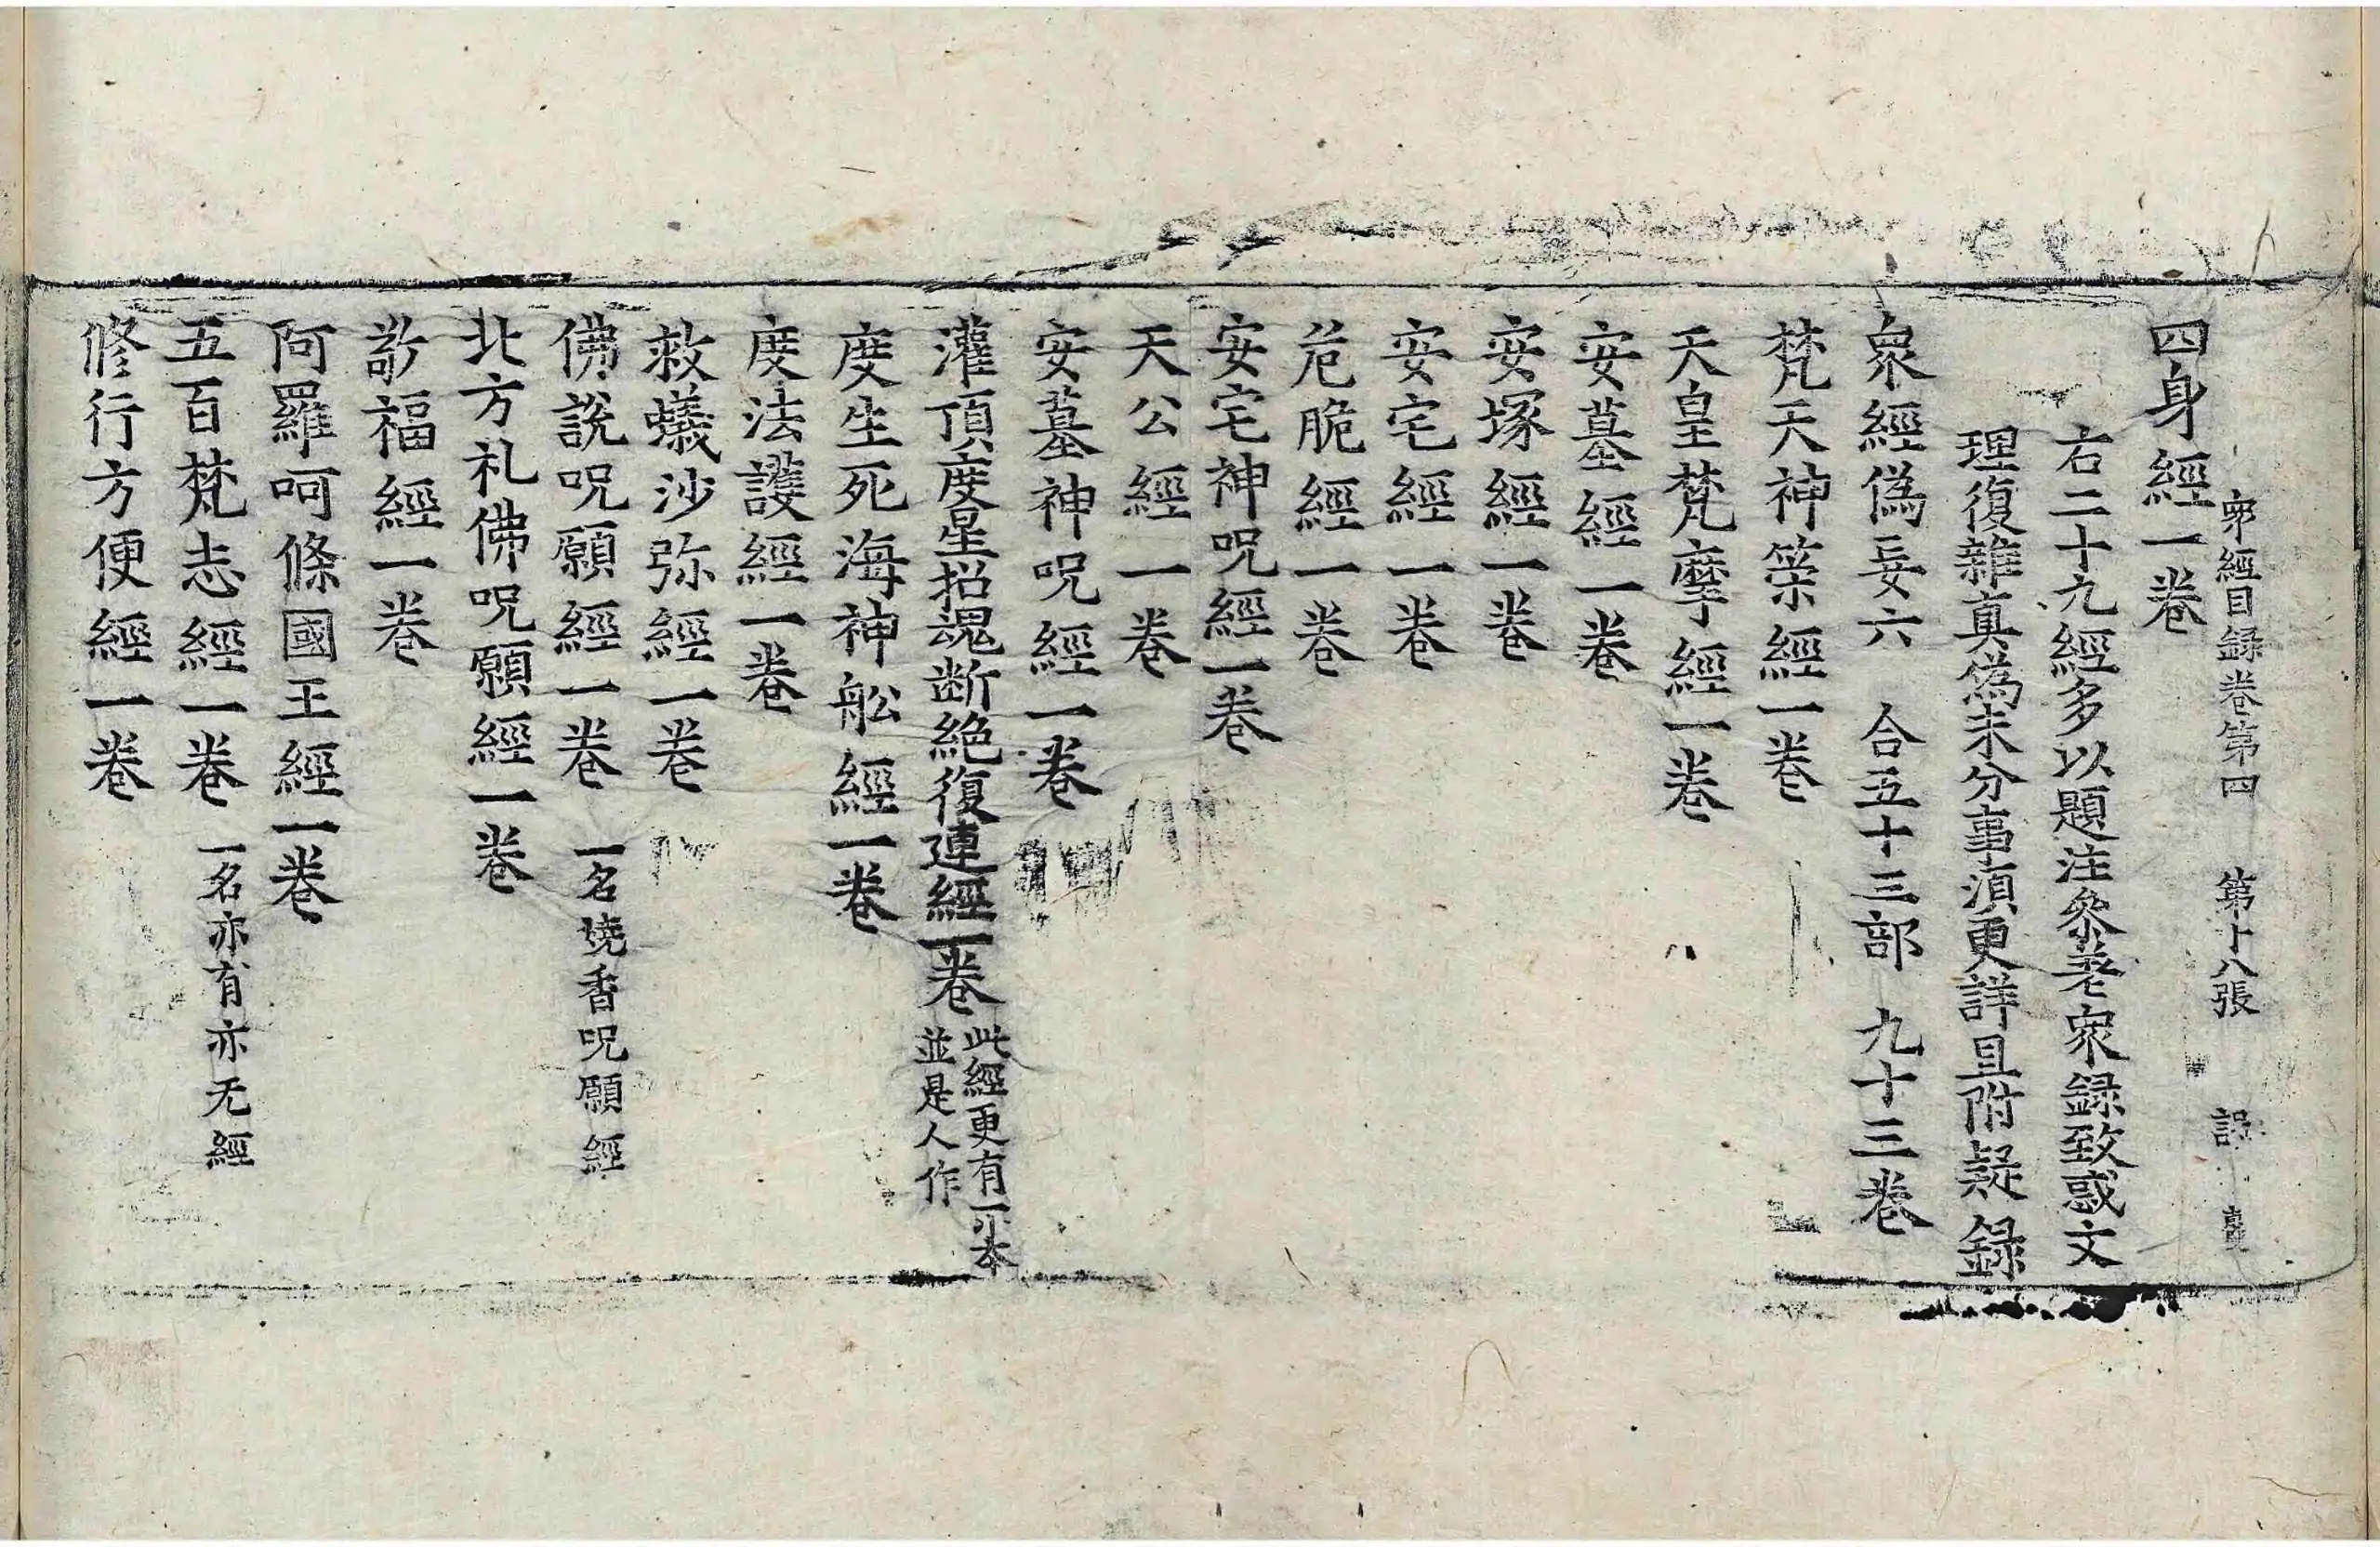 四身經一卷
衆經目録卷第四 第十八張
右二十九經多以題注參差衆録致惑文
理復雜真僞未分事湏更詳且附疑録
衆經僞妄六 合五十三部 九十三卷
梵天神筞經一卷
天皇梵摩經一卷
安墓經一卷
安塚經一卷
安宅經一卷
危脆經一卷
安宅神呪經一卷
天公經一卷
安墓神呪經一卷
灌頂度星招魂断絶復連經一卷 此經更有一小本
並是人作
度生死海神舩經一卷
度法護經一卷
救蟻沙弥經一卷
佛說呪願經一卷 一名燒香呪願經
北方礼佛呪願經一卷
敬福經一卷
阿羅呵條國王經一卷
五百梵志經一卷 一名亦有亦无經
修行方便經一卷